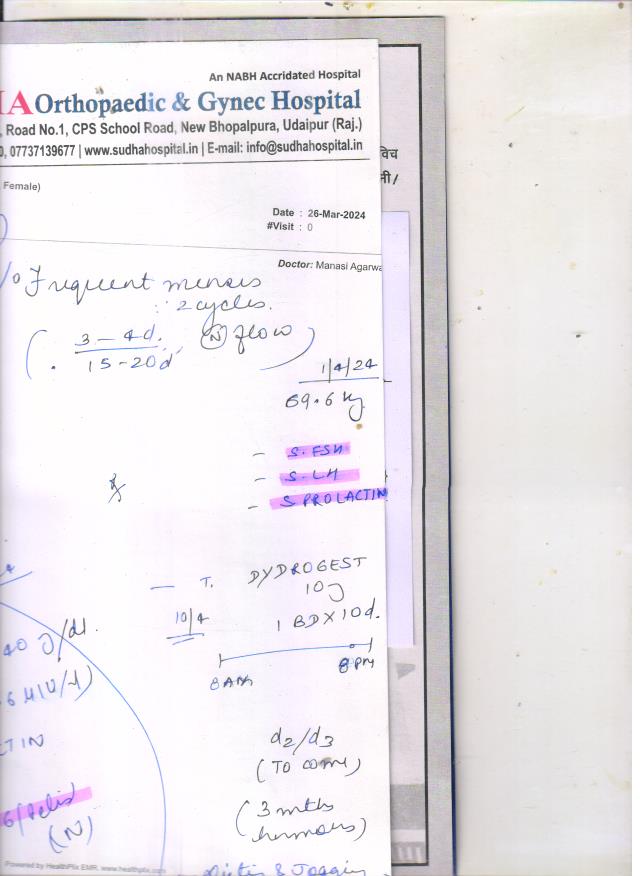 An NABH Accridated Hospital
A Orthopaedic & Gynec Hospital
, Road No.1, CPS School Road, New Bhopalpura, Udaipur (Raj.)
0, 07737139677 | www.sudhahospital.in | E-mail: info@sudhahospital.in
विच
नी/
Female)
Date : 26-Mar-2024
#Visit : 0
Doctor: Manasi Agarwa
Frequent menses
2 cycles.
3-4d. (N) flow
15-20d
1/4/24
69.6 kg
- S. FSH
- S. LH
- S PROLACTIN
— T. DYDROGEST
10
10/4 1 BD X 10d.
8AM 8PM
/dl
d2/d3
CTIN
(TO come)
(3 mths
(N)
hormones)
Powered by HealthPlix EMR. www.healthplix.com